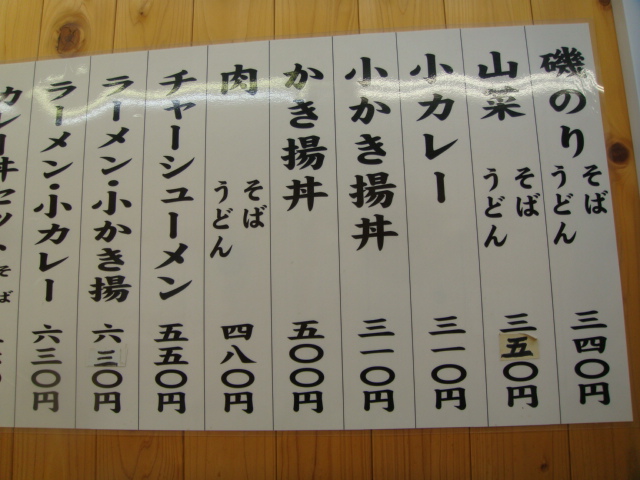 磯のり そば うどん 三四〇円
山菜 そば うどん 三五〇円
小カレー 三一〇円
小かき揚丼 三一〇円
かき揚丼 五〇〇円
肉 そば うどん 四八〇円
チャーシューメン 五五〇円
ラーメン・小かき揚 六三〇円
ラーメン・小カレー 六三〇円
カレー丼セット そば